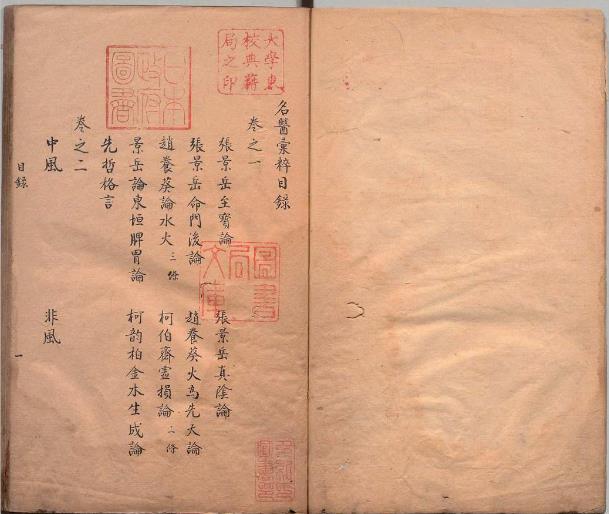 大學東
校典籍
局之印
日本
政府
圖書
名醫彙粹目錄
卷之一
張景岳至寶論 張景岳真陰論
張景岳命門後論 趙養葵火為先天論
趙養葵論水火 三條 柯伯齋虛損論 二條
景岳論東垣脾胃論 柯韵柏金水生成論
先哲格言
卷之二
中風 非風
目錄 一
圖書
局
文庫